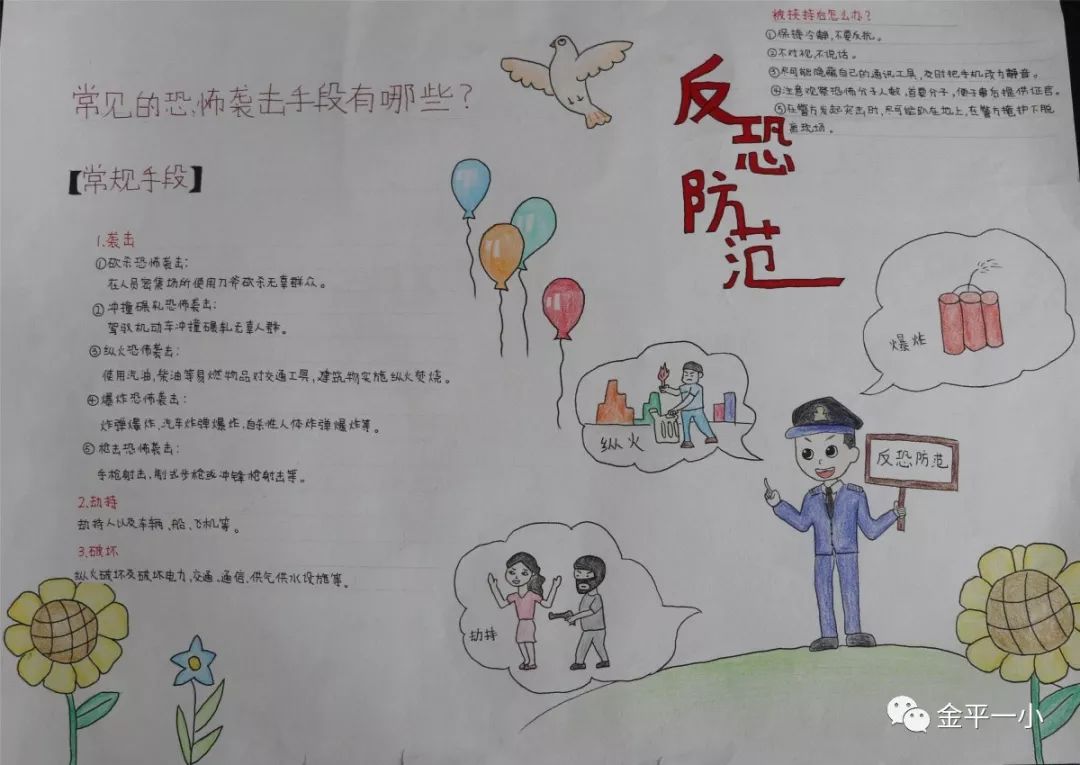 常见的恐怖袭击手段有哪些?
【常规手段】
1.袭击
①砍杀恐怖袭击:
在人员密集场所使用刀斧砍杀无辜群众。
②冲撞碾轧恐怖袭击:
驾驶机动车冲撞碾轧无辜人群。
③纵火恐怖袭击:
使用汽油,柴油等易燃物品对交通工具,建筑物实施纵火焚烧。
④爆炸恐怖袭击:
炸弹爆炸,汽车炸弹爆炸,自杀性人体炸弹爆炸等。
⑤枪击恐怖袭击:
手枪射击,制式步枪或冲锋枪射击等。
2.劫持
劫持人以及车辆、船、飞机等。
3.破坏
纵火破坏及破坏电力,交通、通信、供气供水设施等。
反
恐
防
范
被挟持后怎么办?
①保持冷静,不要反抗。
②不对视,不说话。
③尽可能隐藏自己的通讯工具,及时把手机改为静音。
④注意观察恐怖分子人数,首要分子,便于事后提供证言。
⑤在警方发起突击时,尽可能趴在地上,在警方掩护下脱
离现场。
爆炸
纵火
反恐防范
劫持
金平一小